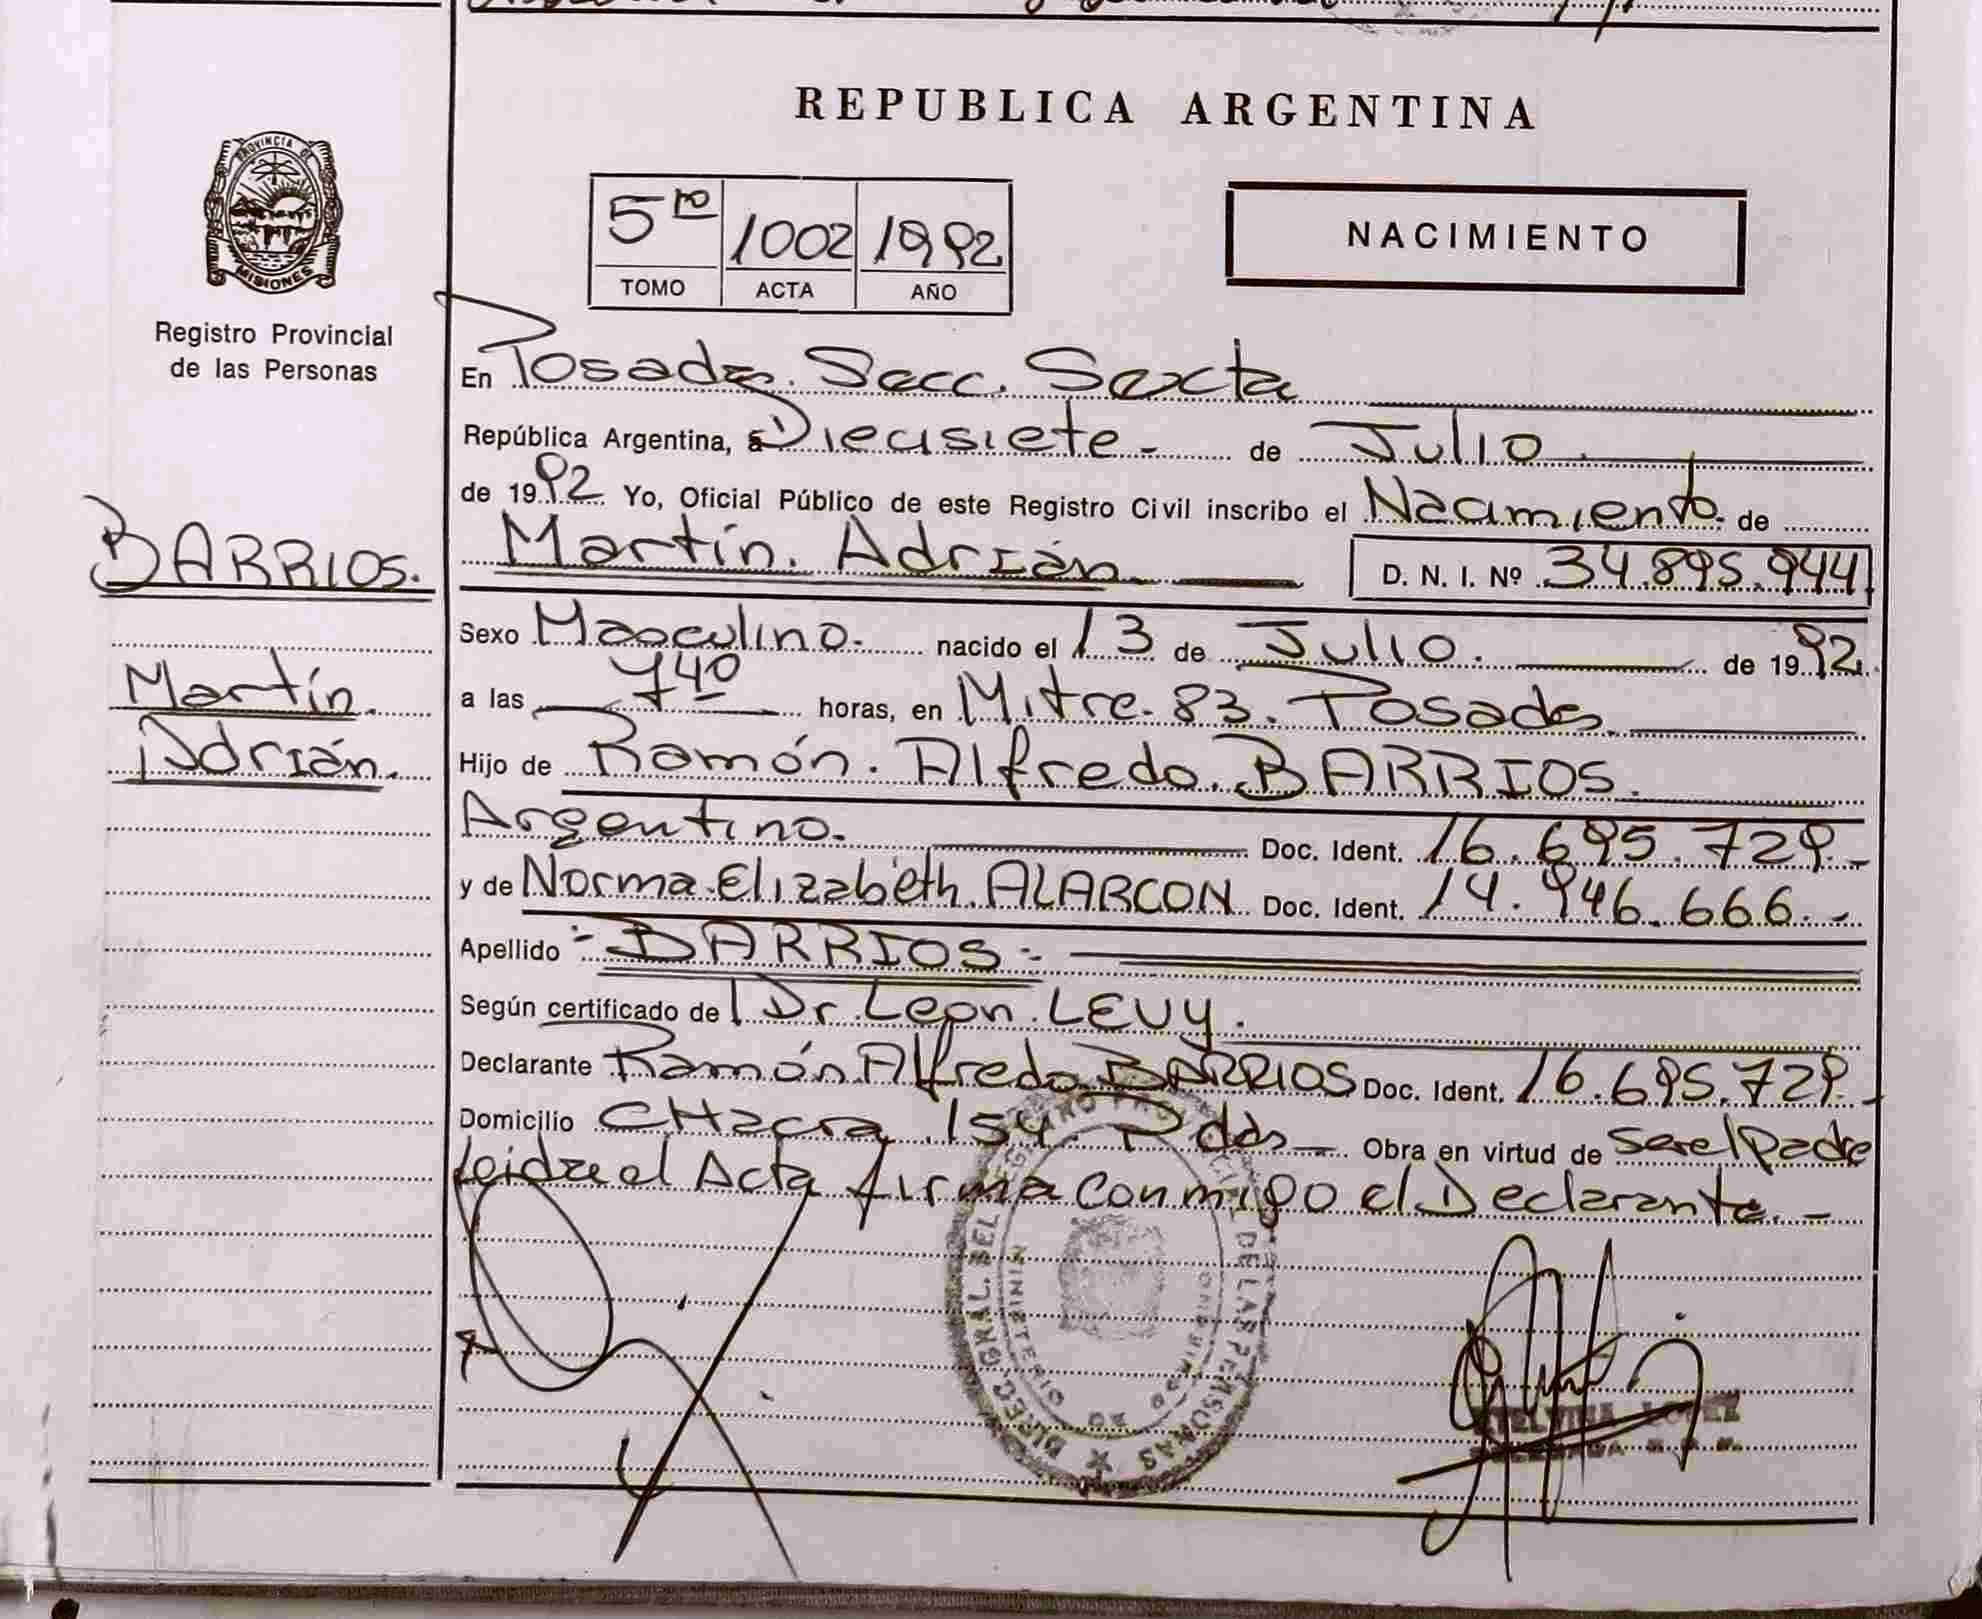 REPUBLICA ARGENTINA
PROVINCIA DE
MISIONES
Registro Provincial
de las Personas
5ro 1002 1992
TOMO ACTA AÑO
NACIMIENTO
En Posadas. Secc. Sexta
República Argentina, a Diecisiete - de Julio
de 1992 Yo, Oficial Público de este Registro Civil inscribo el Nacimiento de
Martín. Adrián D. N. I. Nº 34.895.944
BARRIOS.
Martín.
Adrián.
Sexo Masculino. nacido el 13 de Julio. de 1992.
a las 7 40 horas, en Mitre. 83. Posadas.
Hijo de Ramón. Alfredo. BARRIOS.
Argentino. Doc. Ident. 16.695.729.-
y de Norma. Elizabeth. ALARCON Doc. Ident. 14.946.666.-
Apellido :- BARRIOS :-
Según certificado de Dr. Leon. LEVY.
Declarante Ramón Alfredo BARRIOS Doc. Ident. 16.695.729.-
Domicilio CHacra 154. Pdas - Obra en virtud de ser el Padre
leida el Acta firma conmigo el Declarante. -
DIREC. GRAL. DEL REGISTRO PROVINCIAL DE LAS PERSONAS
LOPEZ